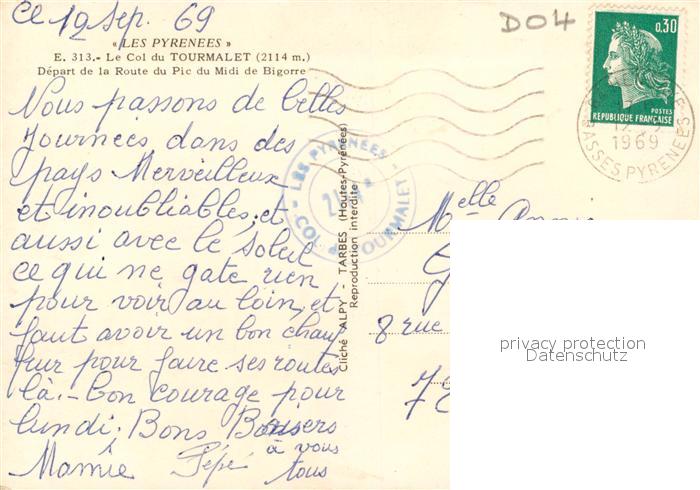 ce 12 sep. 69
DO4
« LES PYRENEES »
E. 313.- Le Col du TOURMALET (2114 m.)
Départ de la Route du Pic du Midi de Bigorre
0,30
POSTES
REPUBLIQUE FRANÇAISE
1969
BASSES PYRENEES
Nous passons de belles
journées, dans des
pays Merveilleux
et inoubliables, et
aussi avec le soleil
ce qui ne gate rien
pour voir au loin, et
faut avoir un bon chauf
feur pour faire ses routes
là. - bon courage pour
lundi. Bons Baisers
à vous
tous
Mamie Pépé
LES PYRENEES
COL DU TOURMALET
Cliché ALPY - TARBES (Hautes-Pyrénées)
Reproduction interdite
Melle
8 rue
privacy protection
Datenschutz